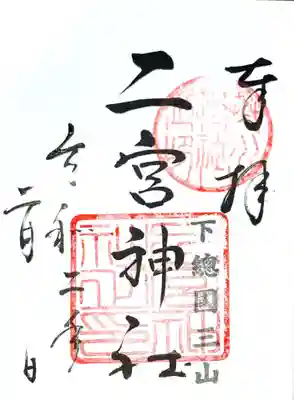 奉拝
下總国三山
二宮神社
令和二年
二月 日